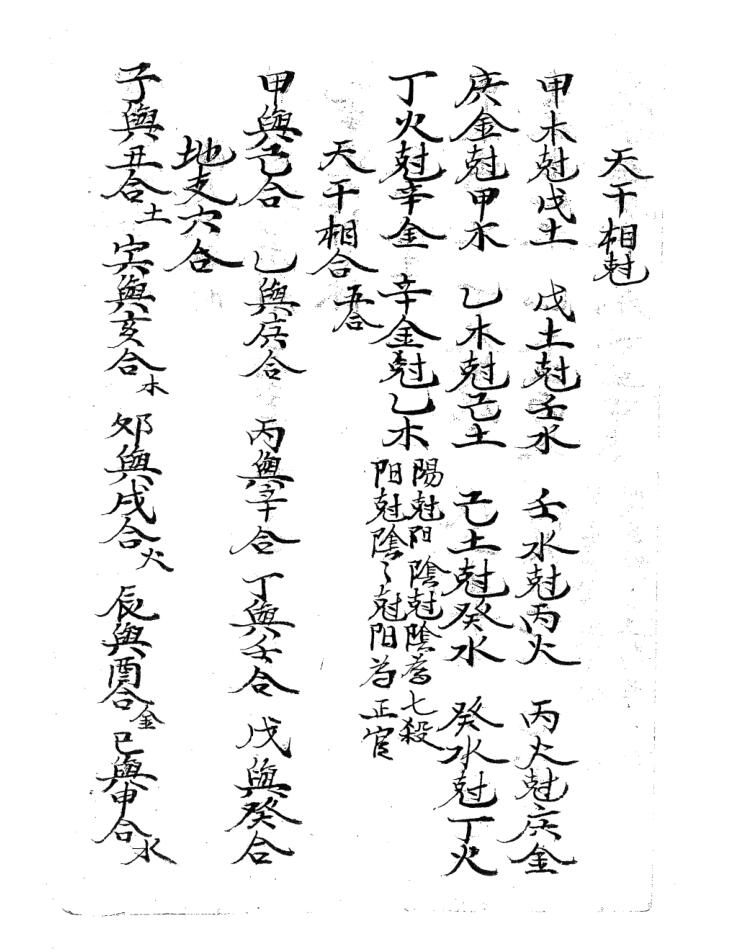 天干相尅
甲木尅戊土 戊土尅壬水 壬水尅丙火 丙火尅庚金
庚金尅甲木 乙木尅己土 己土尅癸水 癸水尅丁火
丁火尅辛金 辛金尅乙木 陽尅阳 陰尅陰為七殺
阳尅陰〻尅阳为正官
天干相合 五合
甲與己合 乙與庚合 丙與辛合 丁與壬合 戊與癸合
地支六合
子與丑合土 寅與亥合木 夘與戌合火 辰與酉合金 巳與申合水